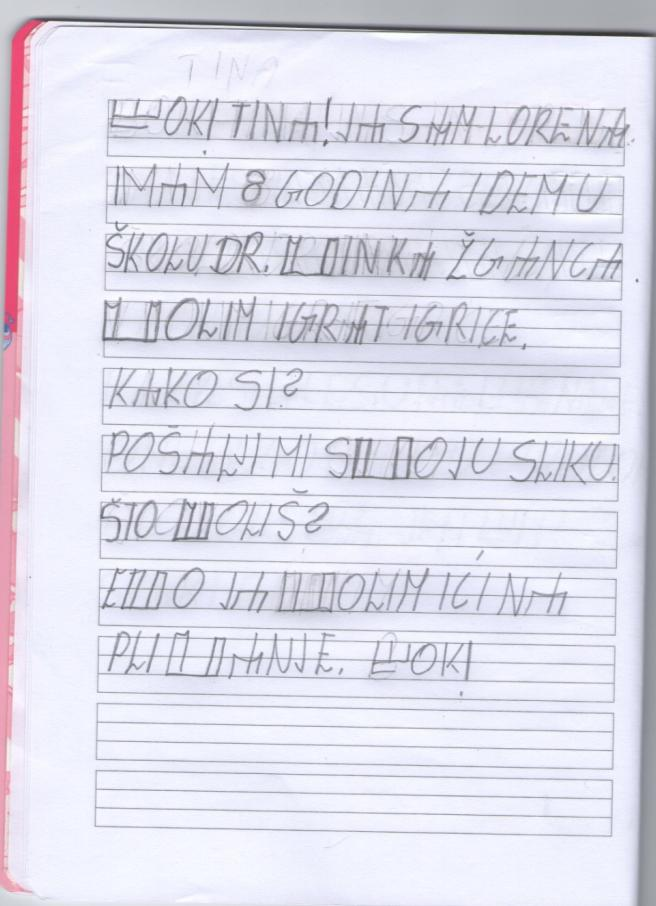 TINA
ⰁOK! TINⰀ! JⰀ SⰀM LORENⰀ.
IMⰀM 8 GODINⰀ IDEM U
ŠKOLU DR. ⰂINKⰀ ŽGⰀNCⰀ.
ⰂOLIM IGRⰀT IGRICE.
KⰀKO SI?
POŠⰀLJI MI SⰂOJU SLIKU.
ŠTO ⰂOLIŠ?
EⰂO JⰀ ⰂOLIM IĆI NⰀ
PLIⰂⰀNJE. ⰁOK!